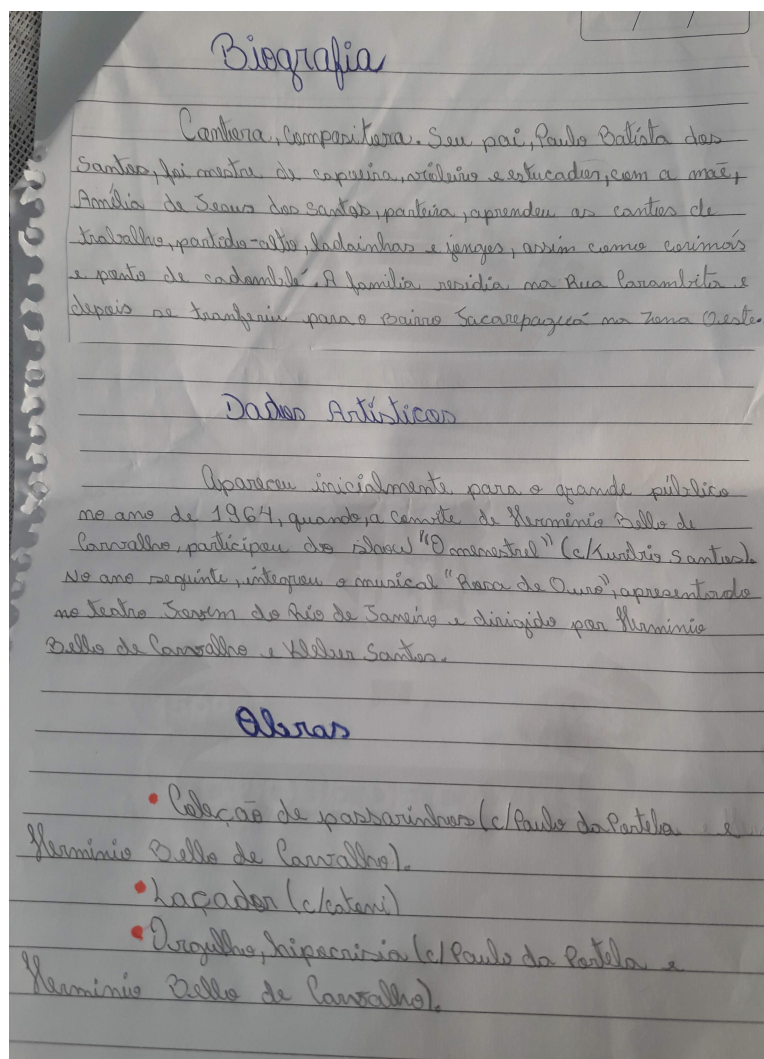 Biografia
Cantora, Compositora. Seu pai, Paulo Batista dos
Santos, foi mestre de capoeira, violeiro e estucador, com a mãe,
Amélia de Jesus dos Santos, parteira, aprendeu os cantos de
trabalho, partido-alto, ladainhas e jongos, assim como corimás
e ponto de cadomblé. A família residia na Rua Carambita e
depois se tranferiu para o Bairro Jacarepaguá na Zona Oeste.
Dados Artísticos
Apareceu inicialmente para o grande público
no ano de 1964, quando, a convite de Hermínio Bello de
Carvalho, participou do show "O menestrel" (c/Turíbio Santos).
No ano seguinte, integrou o musical "Rosa de Ouro", apresentado
no teatro Jovem do Rio de Janeiro e dirigido por Hermínio
Bello de Carvalho e Kleber Santos.
Obras
• Coleção de passarinhos (c/Paulo da Portela e
Hermínio Bello de Carvalho).
• Laçador (c/catoni)
• Orgulho, hipocrisia (c/Paulo da Portela e
Hermínio Bello de Carvalho).